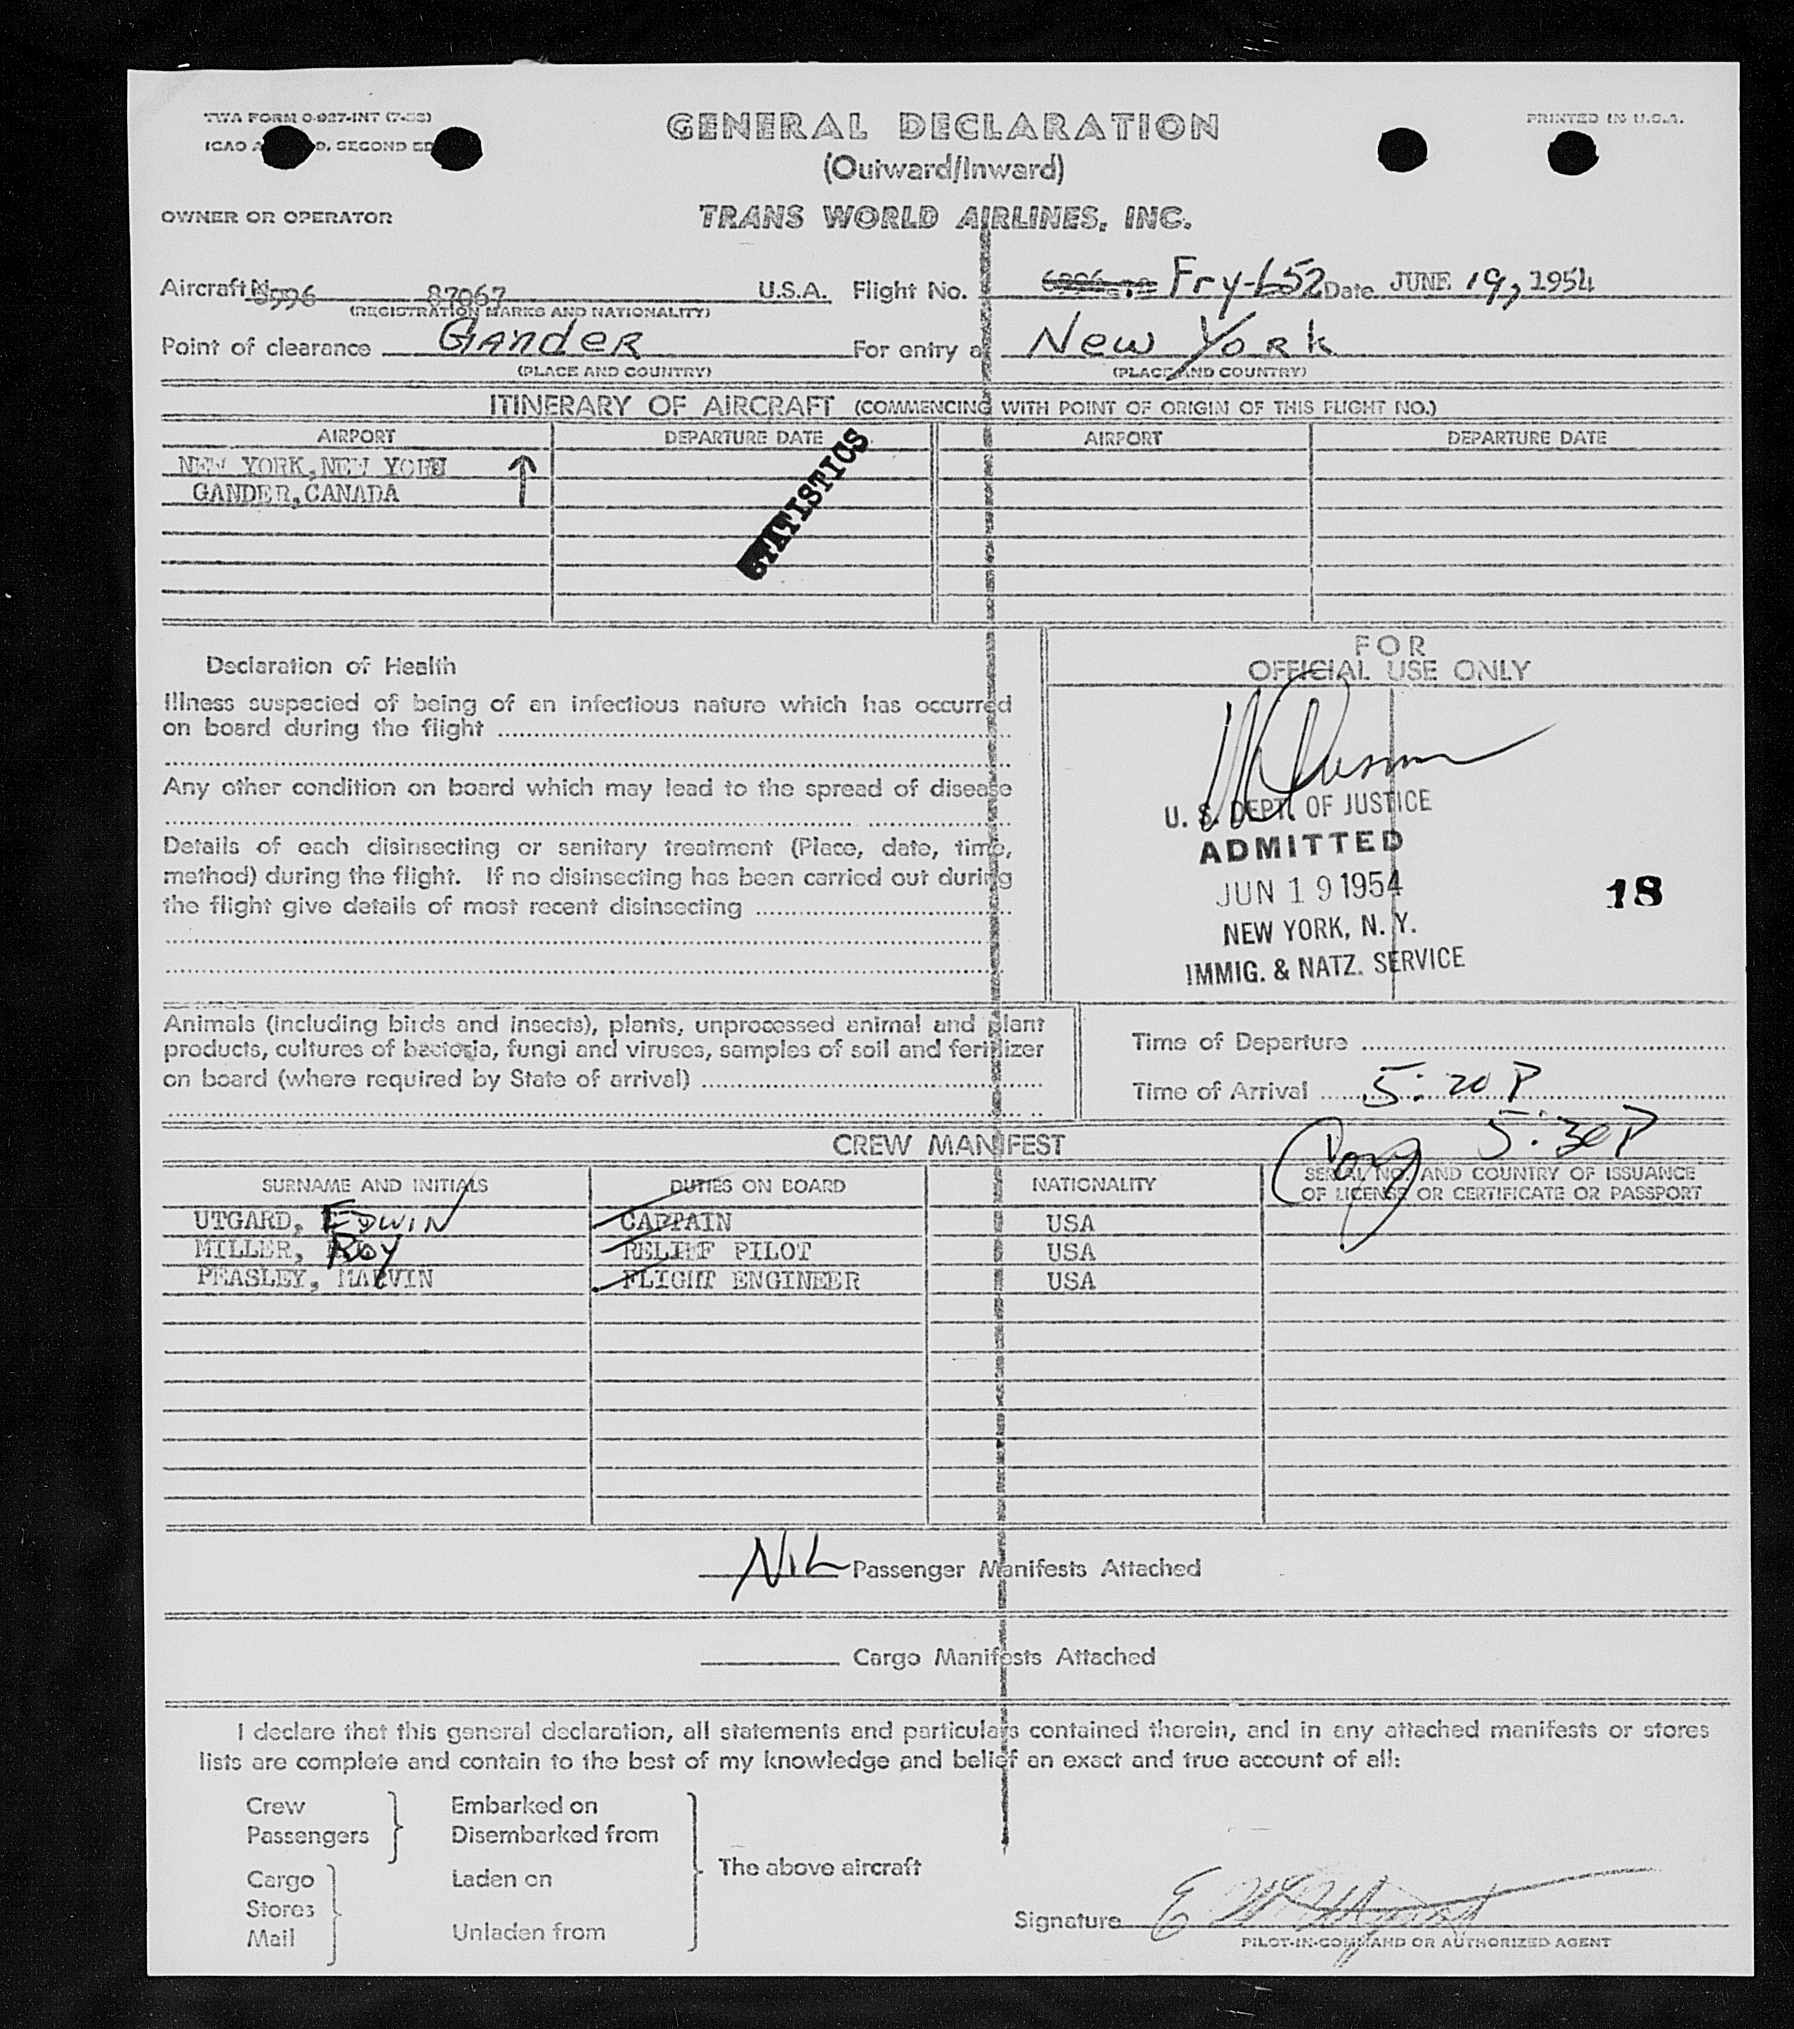 TWA FORM O-927-INT (7-53)
PRINTED IN U.S.A.
ICAO D. SECOND ED
GENERAL DECLARATION
(Outward/Inward)
OWNER OR OPERATOR
TRANS WORLD AIRLINES, INC.
Aircraft 6996 87067 U.S.A. Flight No. Fry-652 Date JUNE 19, 1954
(REGISTRATION MARKS AND NATIONALITY)
Point of clearance Gander For entry at New York
(PLACE AND COUNTRY) (PLACE AND COUNTRY)
ITINERARY OF AIRCRAFT (COMMENCING WITH POINT OF ORIGIN OF THIS FLIGHT NO.)
AIRPORT DEPARTURE DATE AIRPORT DEPARTURE DATE
NEW YORK, NEW YORK
GANDER, CANADA
STATISTICS
Declaration of Health
Illness suspected of being of an infectious nature which has occurred
on board during the flight
Any other condition on board which may lead to the spread of disease
Details of each disinsecting or sanitary treatment (Place, date, time,
method) during the flight. If no disinsecting has been carried out during
the flight give details of most recent disinsecting
FOR
OFFICIAL USE ONLY
U. S. DEPT. OF JUSTICE
ADMITTED
JUN 19 1954
18
NEW YORK, N. Y.
IMMIG. & NATZ. SERVICE
Animals (including birds and insects), plants, unprocessed animal and plant
products, cultures of bacteria, fungi and viruses, samples of soil and fertilizer
on board (where required by State of arrival)
Time of Departure
Time of Arrival 5:20 P
5:30 P
CREW MANIFEST
SURNAME AND INITIALS DUTIES ON BOARD NATIONALITY SERIAL NO. AND COUNTRY OF ISSUANCE
OF LICENSE OR CERTIFICATE OR PASSPORT
UTGARD, EDWIN CAPTAIN USA
MILLER, ROY RELIEF PILOT USA
PEASLEY, MARVIN FLIGHT ENGINEER USA
NIL Passenger Manifests Attached
Cargo Manifests Attached
I declare that this general declaration, all statements and particulars contained therein, and in any attached manifests or stores
lists are complete and contain to the best of my knowledge and belief an exact and true account of all:
Crew Embarked on
Passengers Disembarked from
The above aircraft
Cargo Laden on
Stores
Mail Unladen from
Signature
PILOT-IN-COMMAND OR AUTHORIZED AGENT